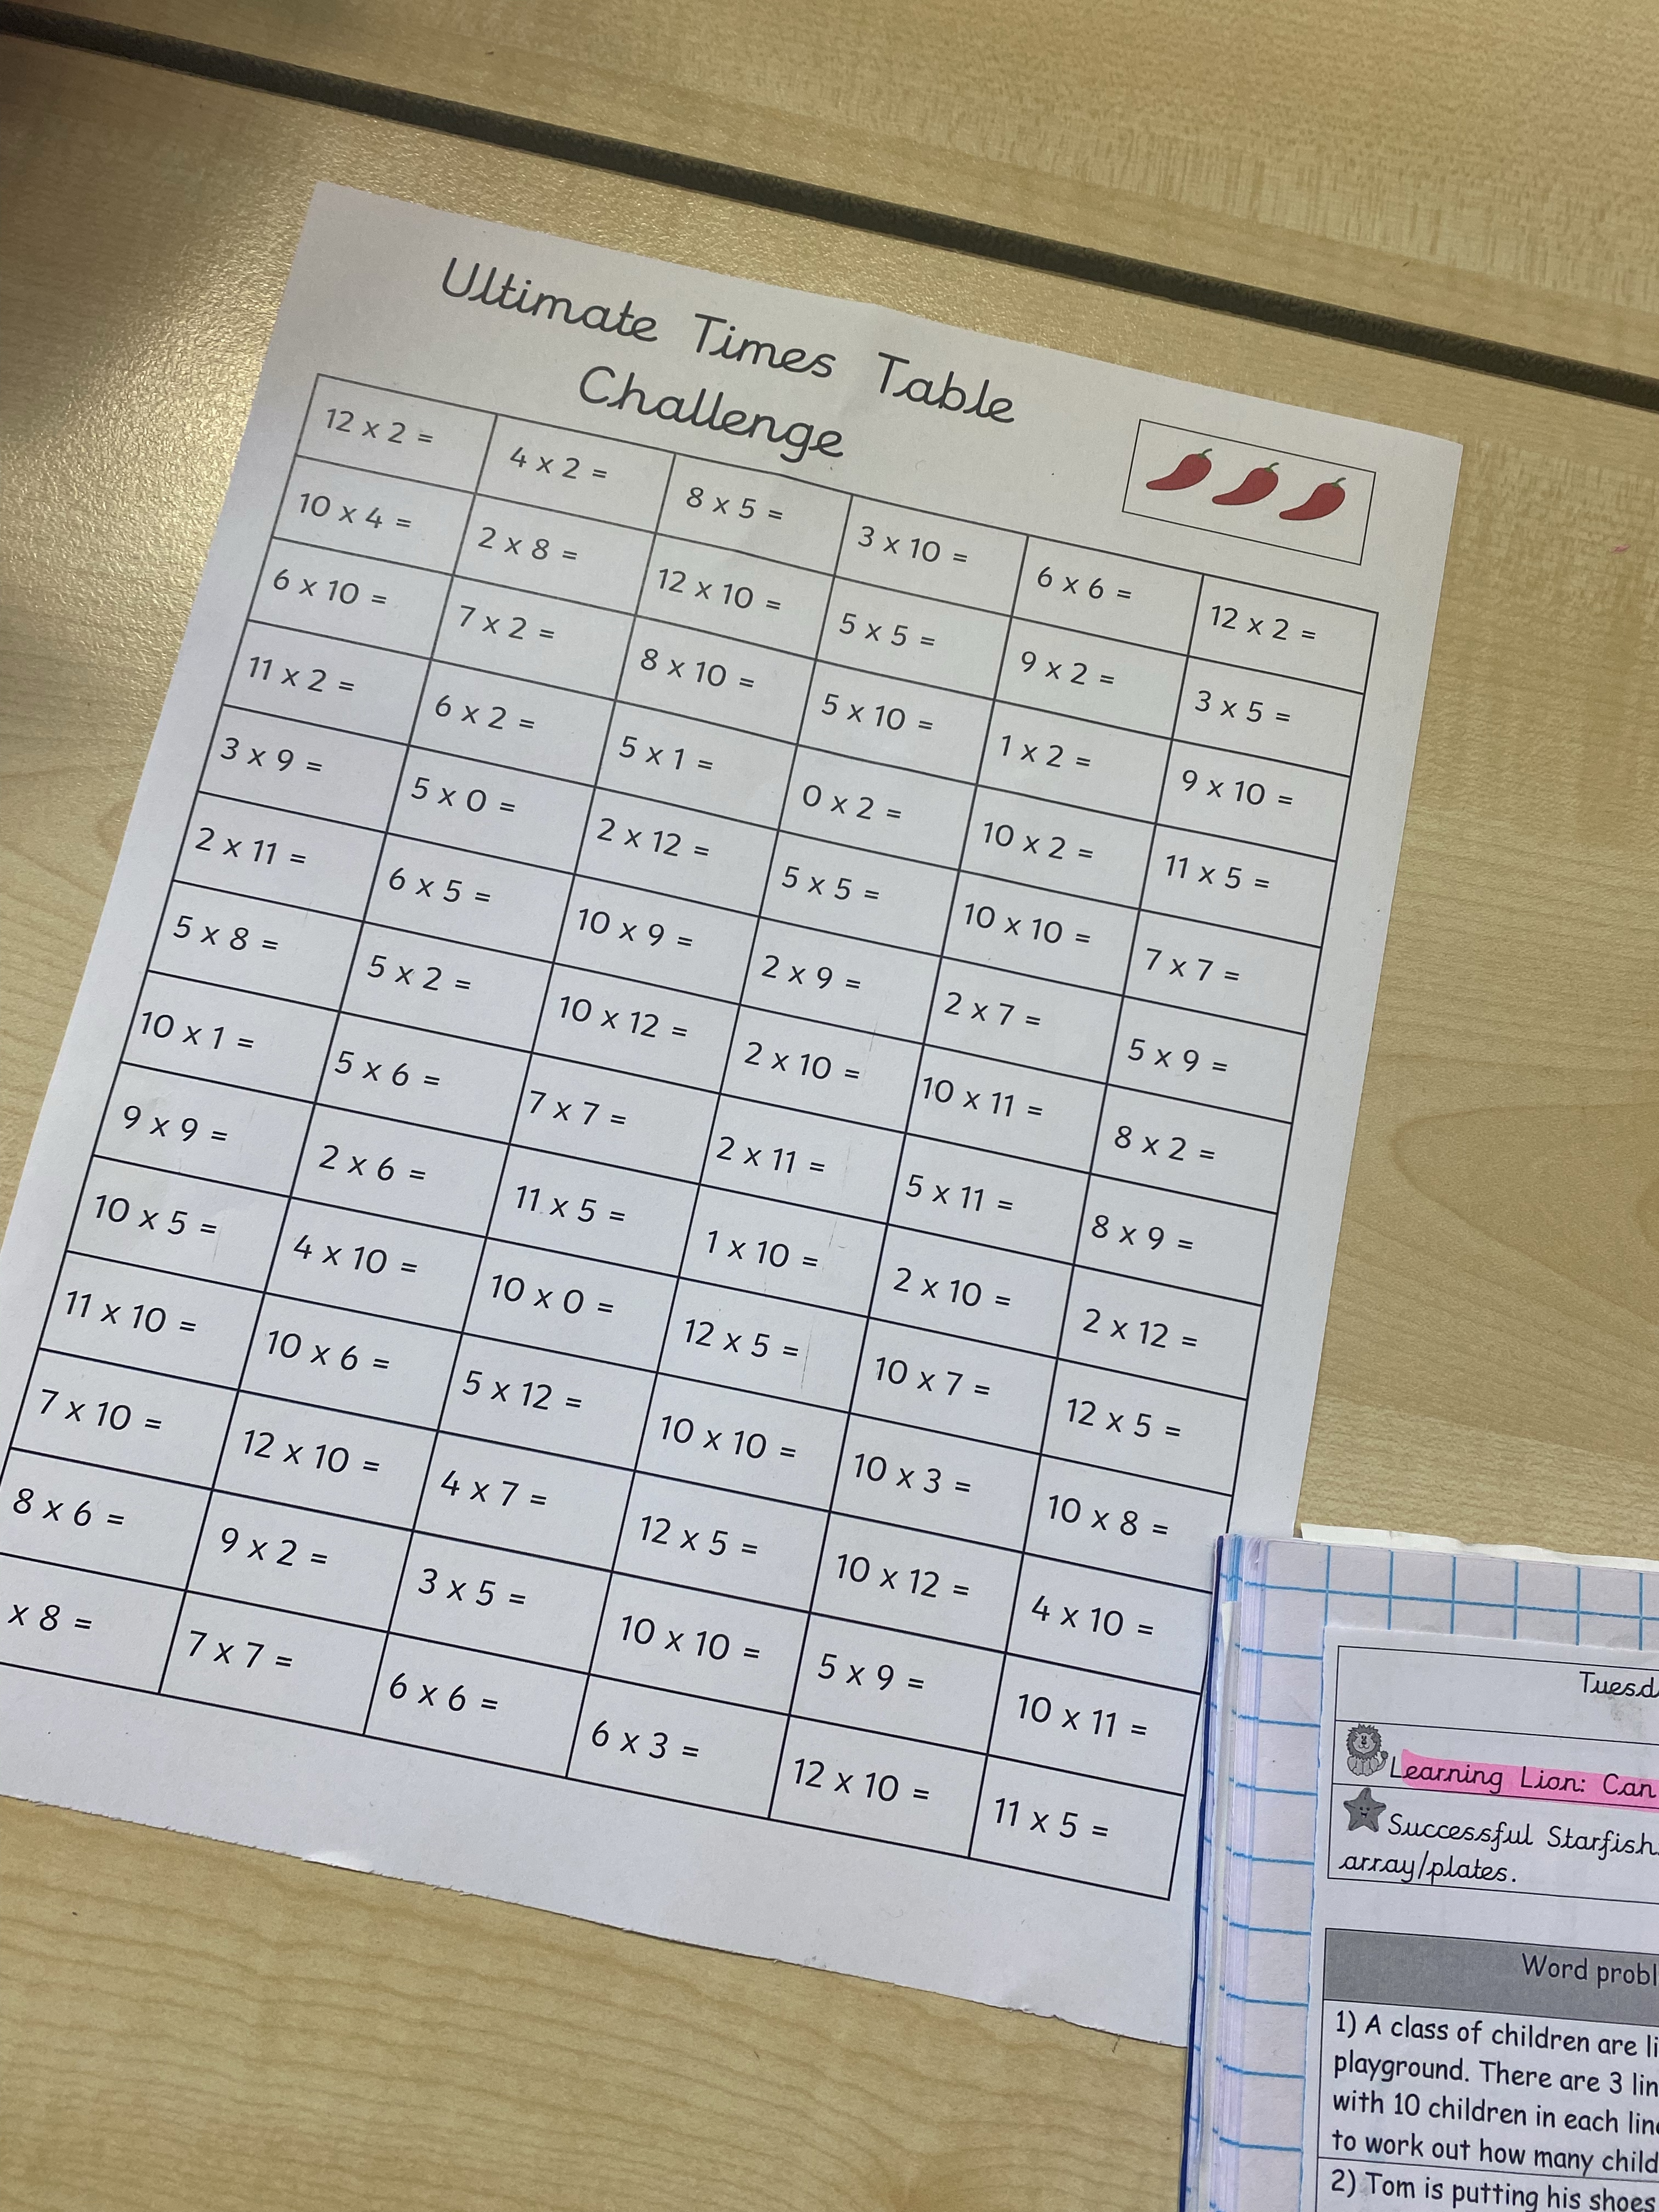 Ultimate Times Table
Challenge
12 x 2 = 4 x 2 = 8 x 5 = 3 x 10 = 6 x 6 = 12 x 2 =
10 x 4 = 2 x 8 = 12 x 10 = 5 x 5 = 9 x 2 = 3 x 5 =
6 x 10 = 7 x 2 = 8 x 10 = 5 x 10 = 1 x 2 = 9 x 10 =
11 x 2 = 6 x 2 = 5 x 1 = 0 x 2 = 10 x 2 = 11 x 5 =
3 x 9 = 5 x 0 = 2 x 12 = 5 x 5 = 10 x 10 = 7 x 7 =
2 x 11 = 6 x 5 = 10 x 9 = 2 x 9 = 2 x 7 = 5 x 9 =
5 x 8 = 5 x 2 = 10 x 12 = 2 x 10 = 10 x 11 = 8 x 2 =
10 x 1 = 5 x 6 = 7 x 7 = 2 x 11 = 5 x 11 = 8 x 9 =
9 x 9 = 2 x 6 = 11 x 5 = 1 x 10 = 2 x 10 = 2 x 12 =
10 x 5 = 4 x 10 = 10 x 0 = 12 x 5 = 10 x 7 = 12 x 5 =
11 x 10 = 10 x 6 = 5 x 12 = 10 x 10 = 10 x 3 = 10 x 8 =
7 x 10 = 12 x 10 = 4 x 7 = 12 x 5 = 10 x 12 = 4 x 10 =
8 x 6 = 9 x 2 = 3 x 5 = 10 x 10 = 5 x 9 = 10 x 11 =
x 8 = 7 x 7 = 6 x 6 = 6 x 3 = 12 x 10 = 11 x 5 =
Tuesd
Learning Lion: Can
Successful Starfish
array/plates.
Word probl
1) A class of children are li
playground. There are 3 lin
with 10 children in each line
to work out how many child
2) Tom is putting his shoes